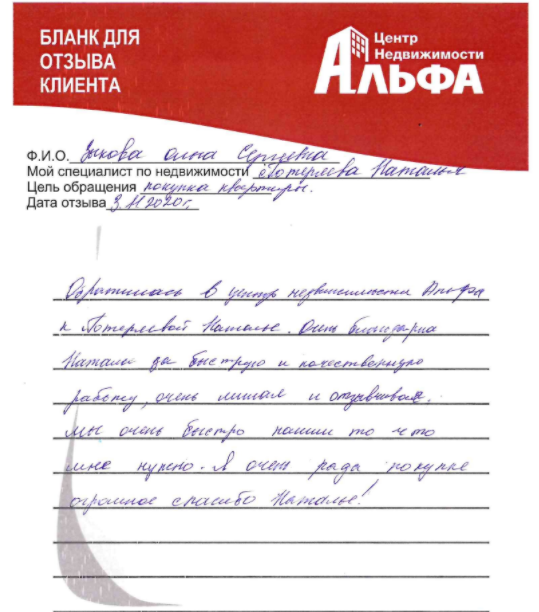 БЛАНК ДЛЯ
ОТЗЫВА
КЛИЕНТА
Центр
Недвижимости
АЛЬФА
Ф.И.О. Зыкова Анна Сергеевна
Мой специалист по недвижимости Потеряева Наталья
Цель обращения покупка квартиры.
Дата отзыва 3.11.2020г.
Обратилась в центр недвижимости Альфа
к Потеряевой Наталье. Очень благодарна
Наталье за быструю и качественную
работу, очень милая и отзывчивая.
мы очень быстро нашли то что
мне нужно. Я очень рада покупке
огромное спасибо Наталье!